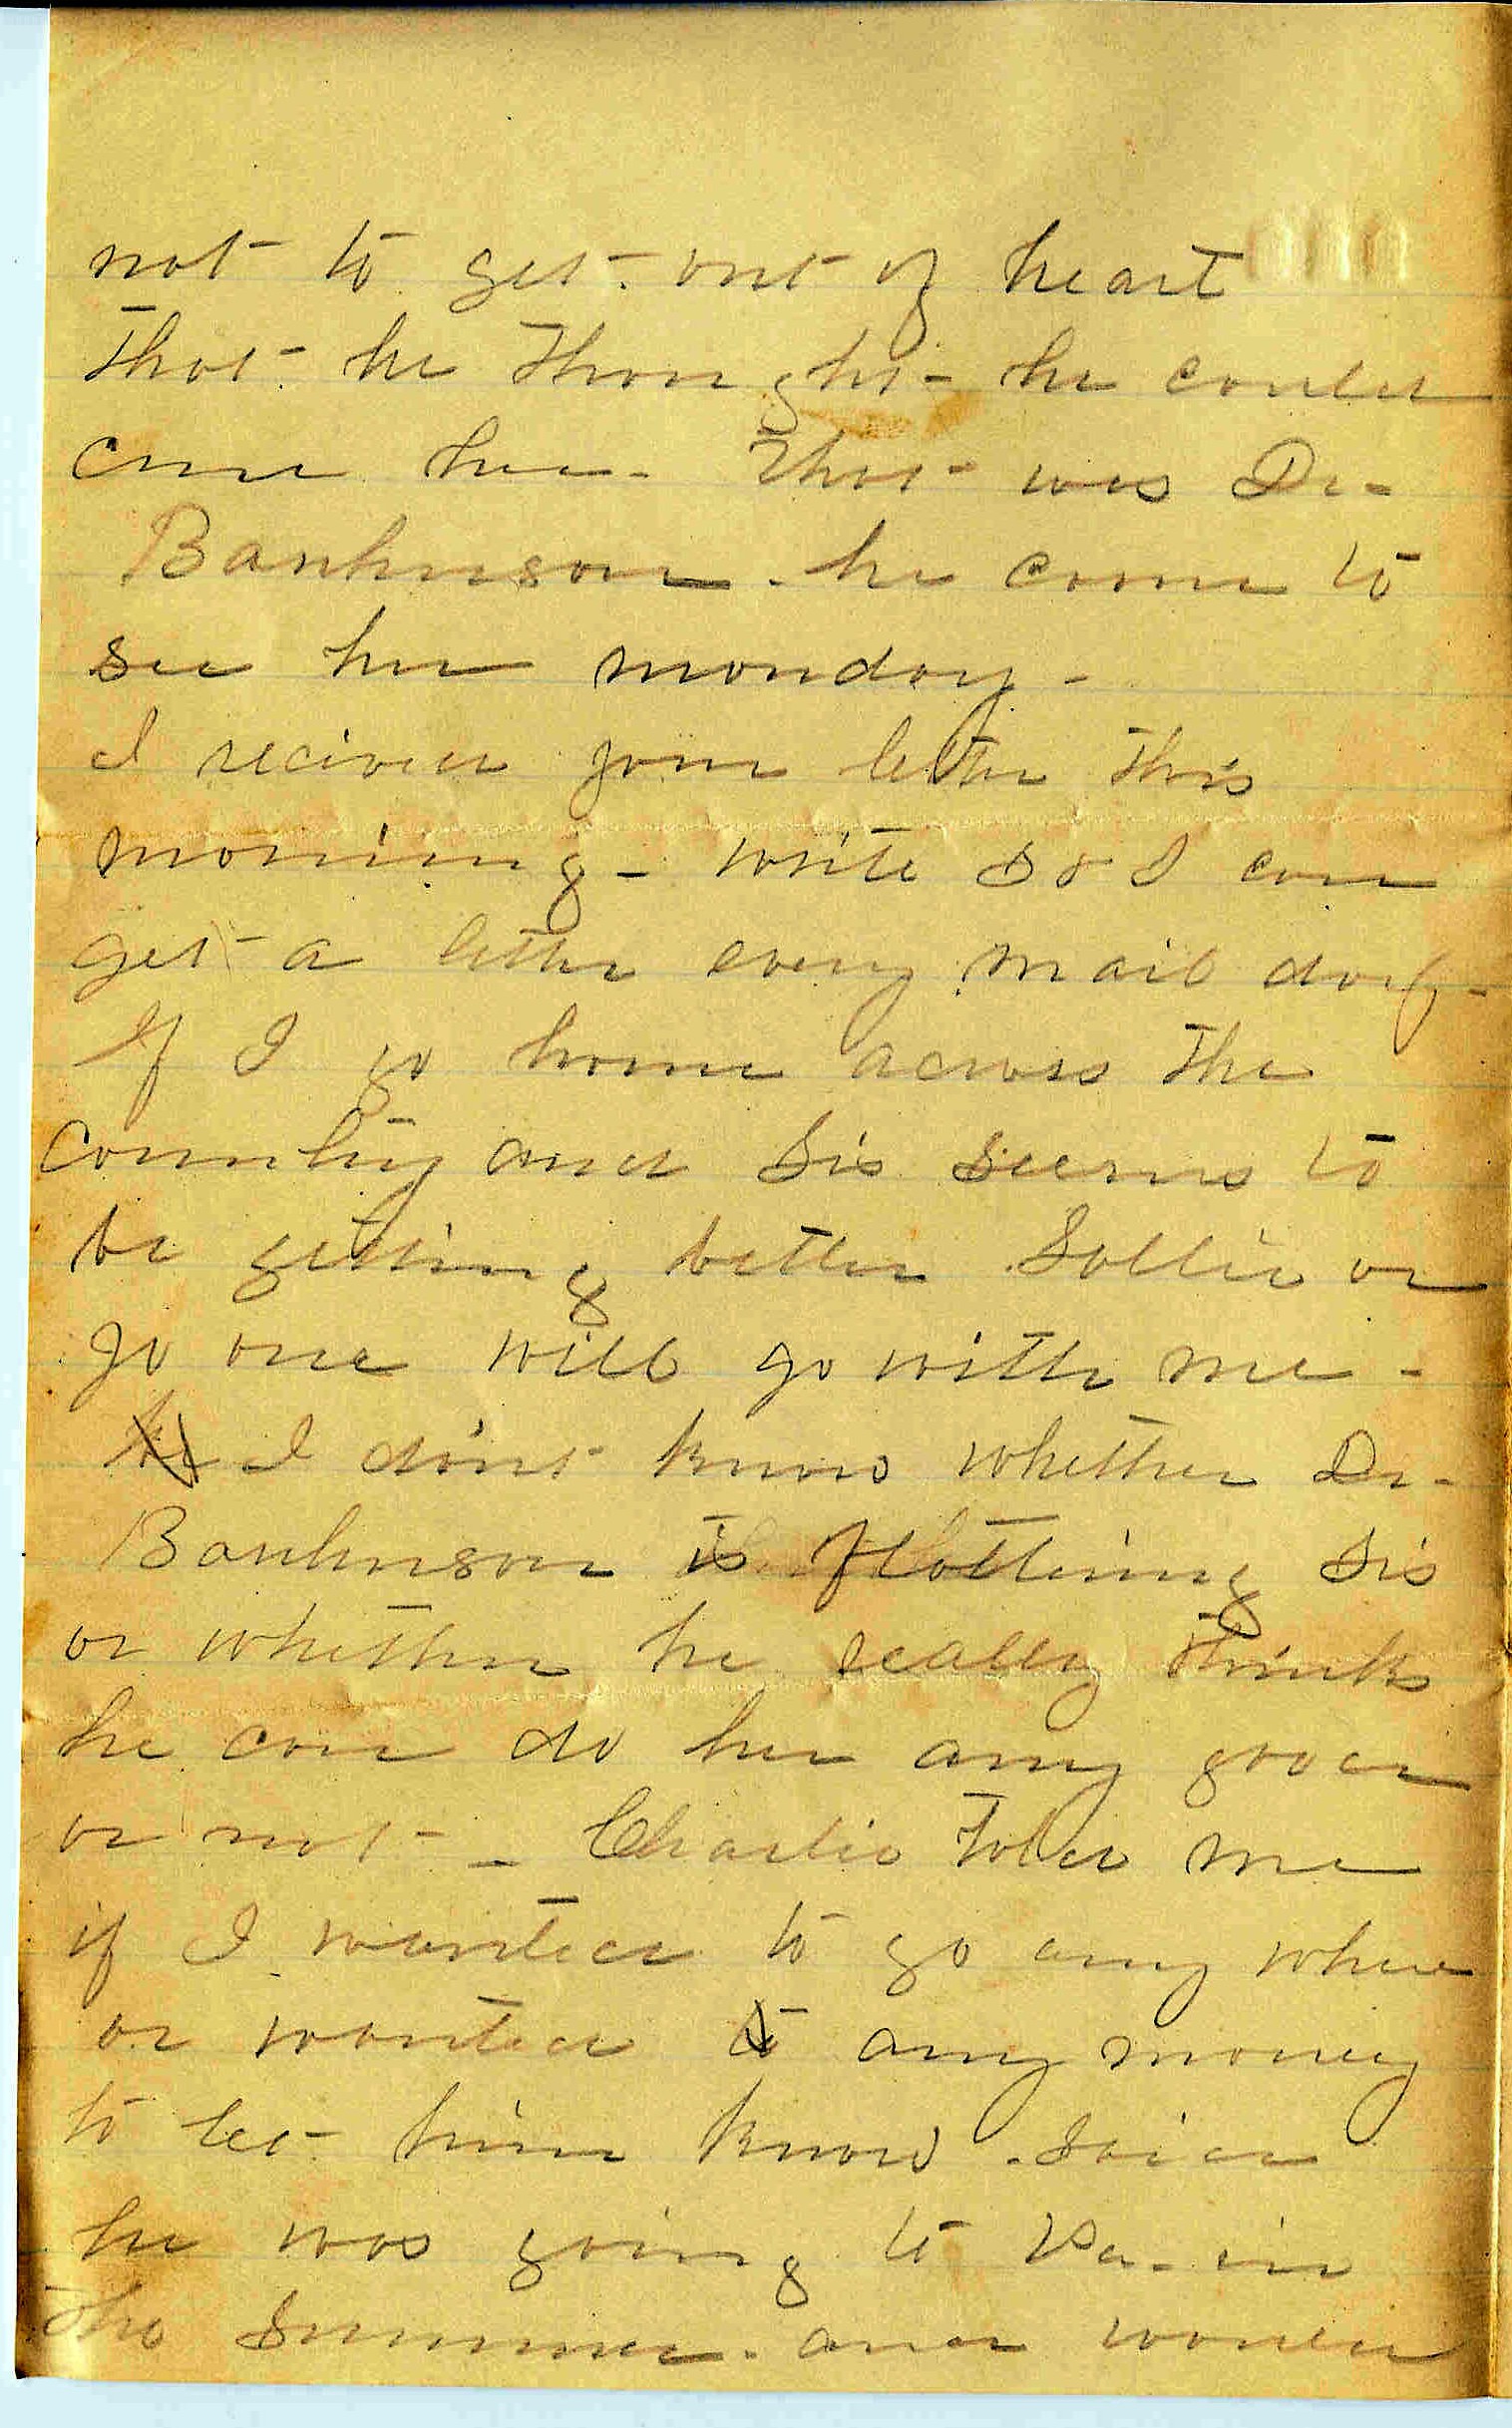 not to get out of heart
that he thought he could
cure her. That was Dr-
Bankinson. he come to
see her monday-
I recived your letter this
morning- write so I can
get a letter every mail day-
If I go home across the
country and Sis seems to
be getting better Sallie or
Jo one will go with me-
I dont know whether Dr-
Bankinson is flattering Sis
or whether he really thinks
he can do her any good
or not- Charlie told me
if I wanted to go any where
or wanted any money
to let him know. Said
he was going to Va. in
the Summer. and would